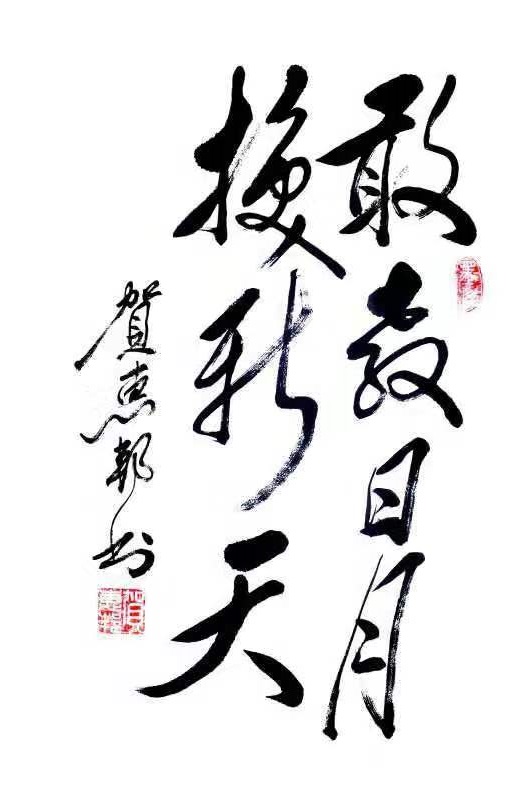 敢教日月
换新天
贺惠邦书